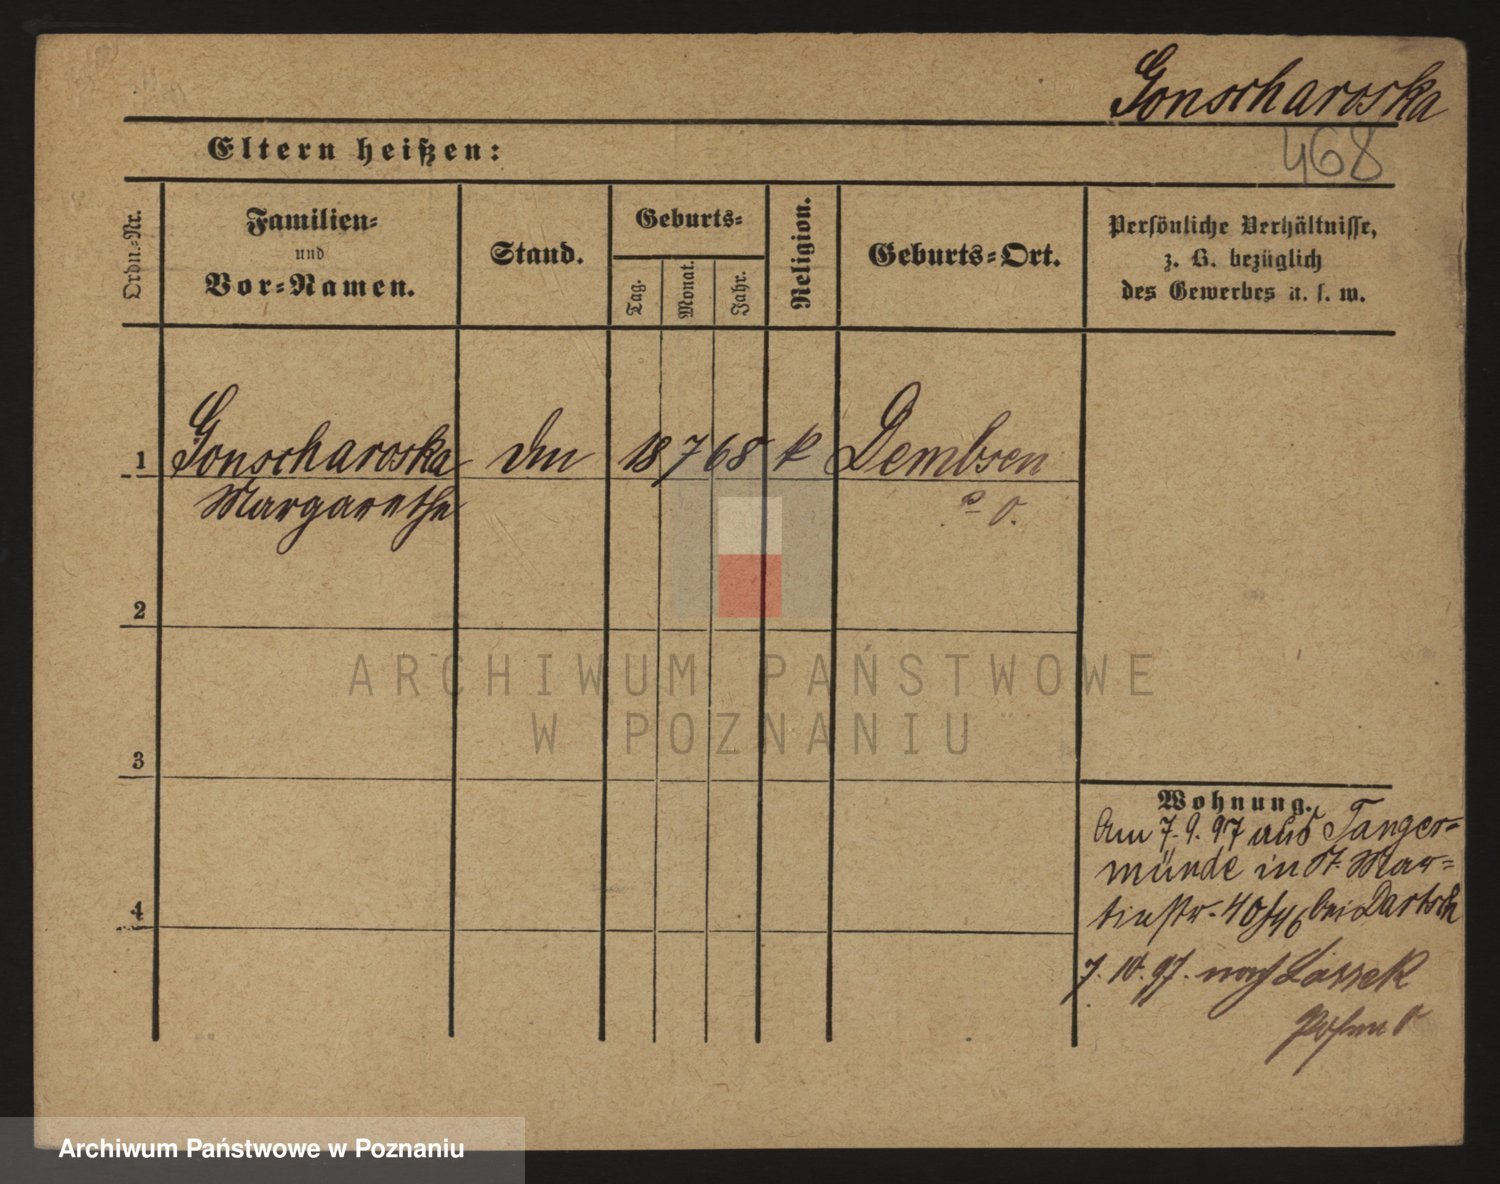 Gonscharoska
468
Eltern heißen:
Ordn.-Nr.
Familien-
und
Vor-Namen.
Stand.
Geburts-
Tag.
Monat.
Jahr.
Religion.
Geburts-Ort.
Persönliche Verhältnisse,
z. B. bezüglich
des Gewerbes u. s. w.
1
Gonscharoska
18 7 68 k Dembsen
Margarethe
P. O.
2
ARCHIWUM PAŃSTWOWE
W POZNANIU
3
Wohnung.
Am 7.9.97 aus Tanger-
münde in St. Mar-
tinstr. 40/46 bei Bartsch
4
7.10.97. nach Lassek
Posen O
Archiwum Państwowe w Poznaniu